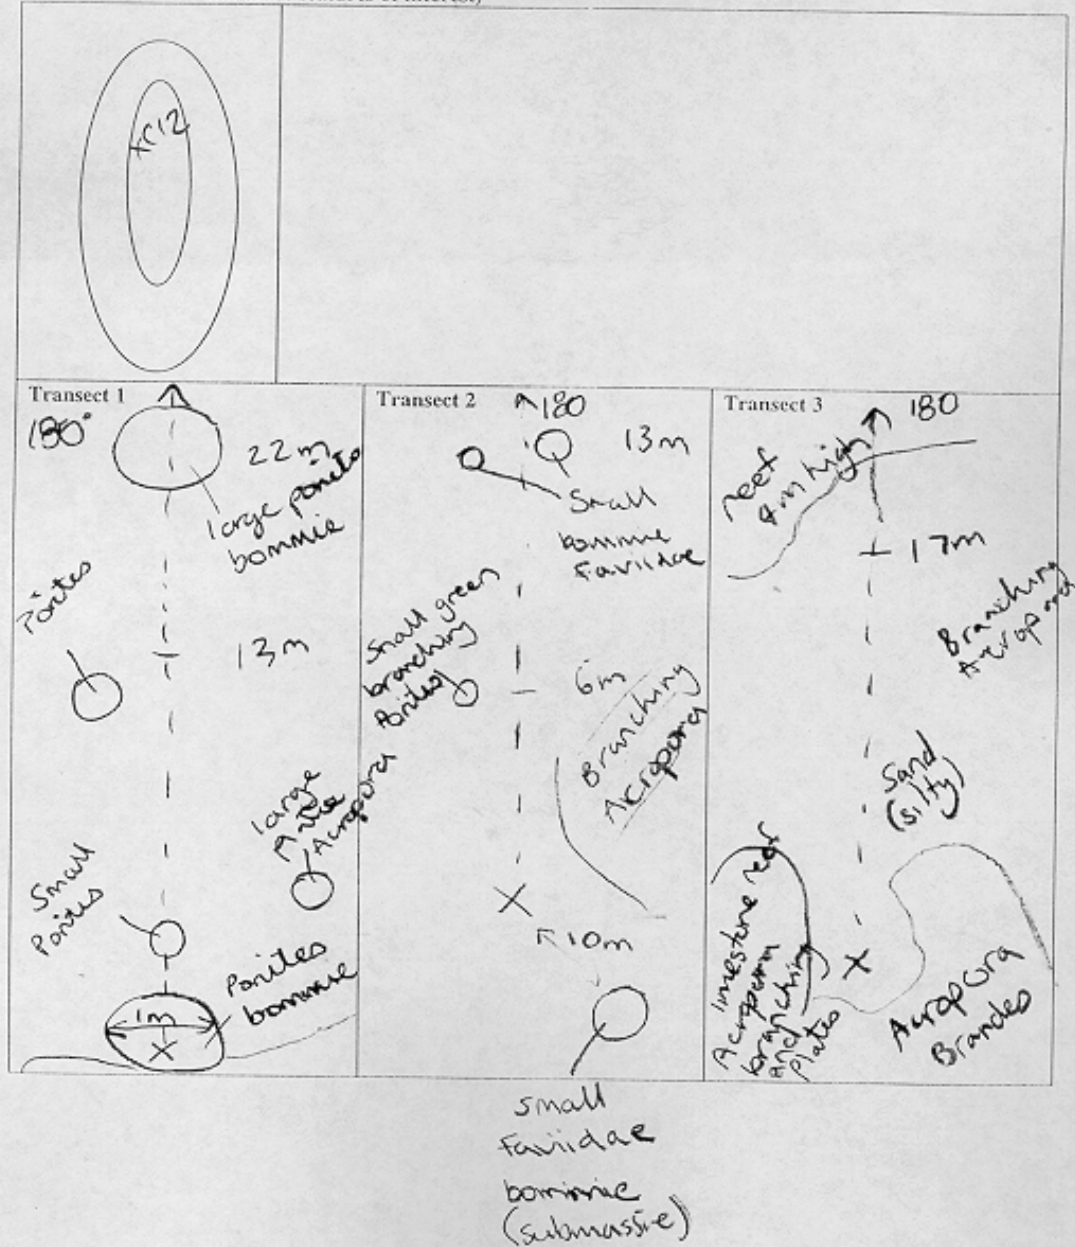 tr12
Transect 1
180°
22m
large porites
bommie
Porites
13m
large
Acropora
Small
Porites
Porites
bommie
1m
X
Transect 2
180
13m
Small
bommie
Faviidae
Small green
branching
Porites
6m
Branching
Acropora
X
10m
small
faviidae
bommie
(submassie)
Transect 3
180
reef
high
17m
Branching
Acropora
Sand
(silty)
limestone reef
Acropora
branching
and
plates
X
Acropora